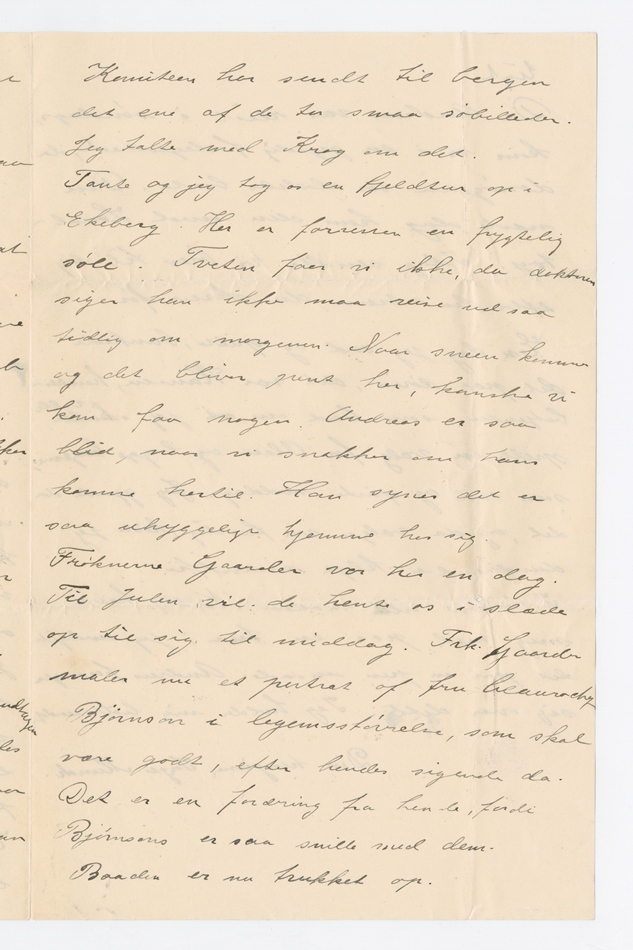 Komiteen har sendt til bergen
det ene af de to smaa søbilleder.
Jeg talte med Krag om det.
Tante og jeg tog os en fjeldtur op i
Ekeberg. Her er forresten en frygtelig
søle. Tveten faar vi ikke, da doktoren
siger han ikke maa reise ud saa
tidlig om morgenen. Naar sneen kommer
og det bliver pent her, kanske vi
kan faa nogen. Andreas er saa
blid, naar vi snakker om hans
komme hertil. Han synes det er
saa uhyggeligt hjemme hos sig.
Frøknerne Gaarder var her en dag.
Til Julen vil de hente os i slæde
op til sig til middag. Frk. Gaarder
maler nu et portræt af fru
Bjørnson i legemsstørrelse, som skal
være godt, efter hendes sigende da.
Det er en foræring fra hende, fordi
Bjørnsons er saa snille med dem.
Baaden er nu trukket op.